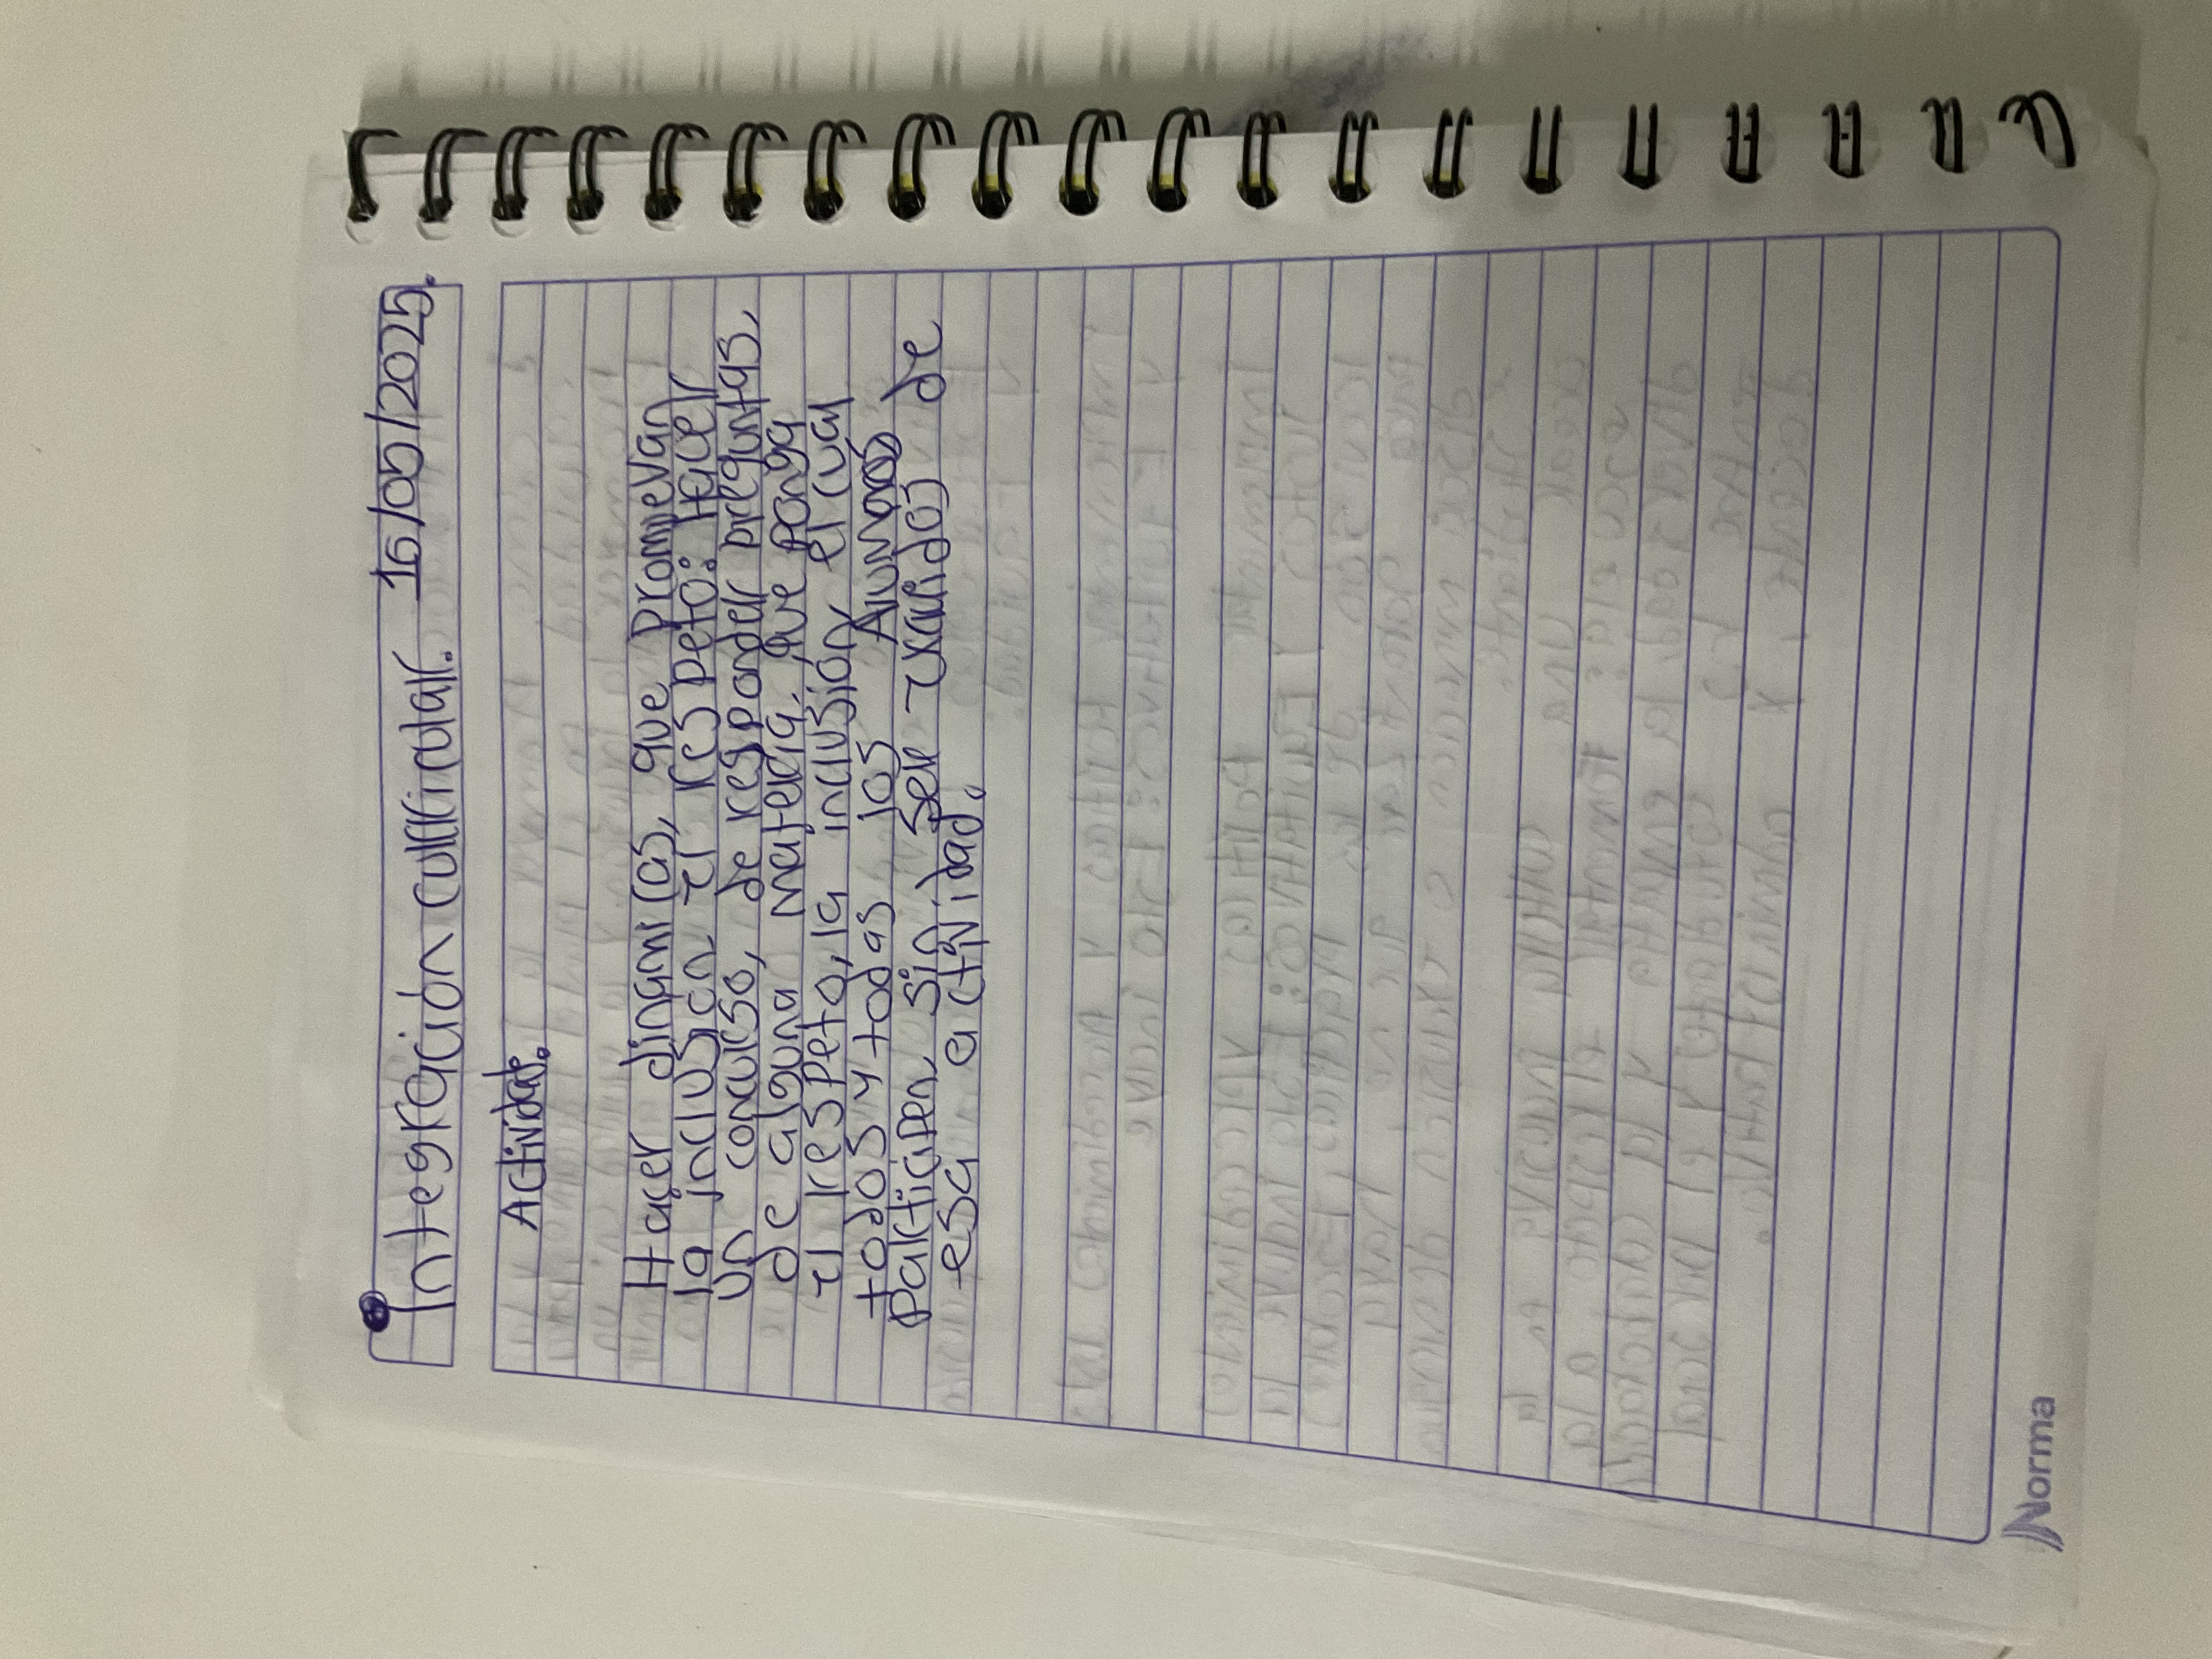 Integración curricular. 16/05/2025.
Actividad.
Hacer dinamicas, que promuevan
la inclusión el respeto: Hacer
un concurso, de responder preguntas,
de alguna materia, que ponga
el respeto, la inclusión, el cual
todos y todas los Alumnos
participen sin ser excluidos de
esa actividad.
Norma